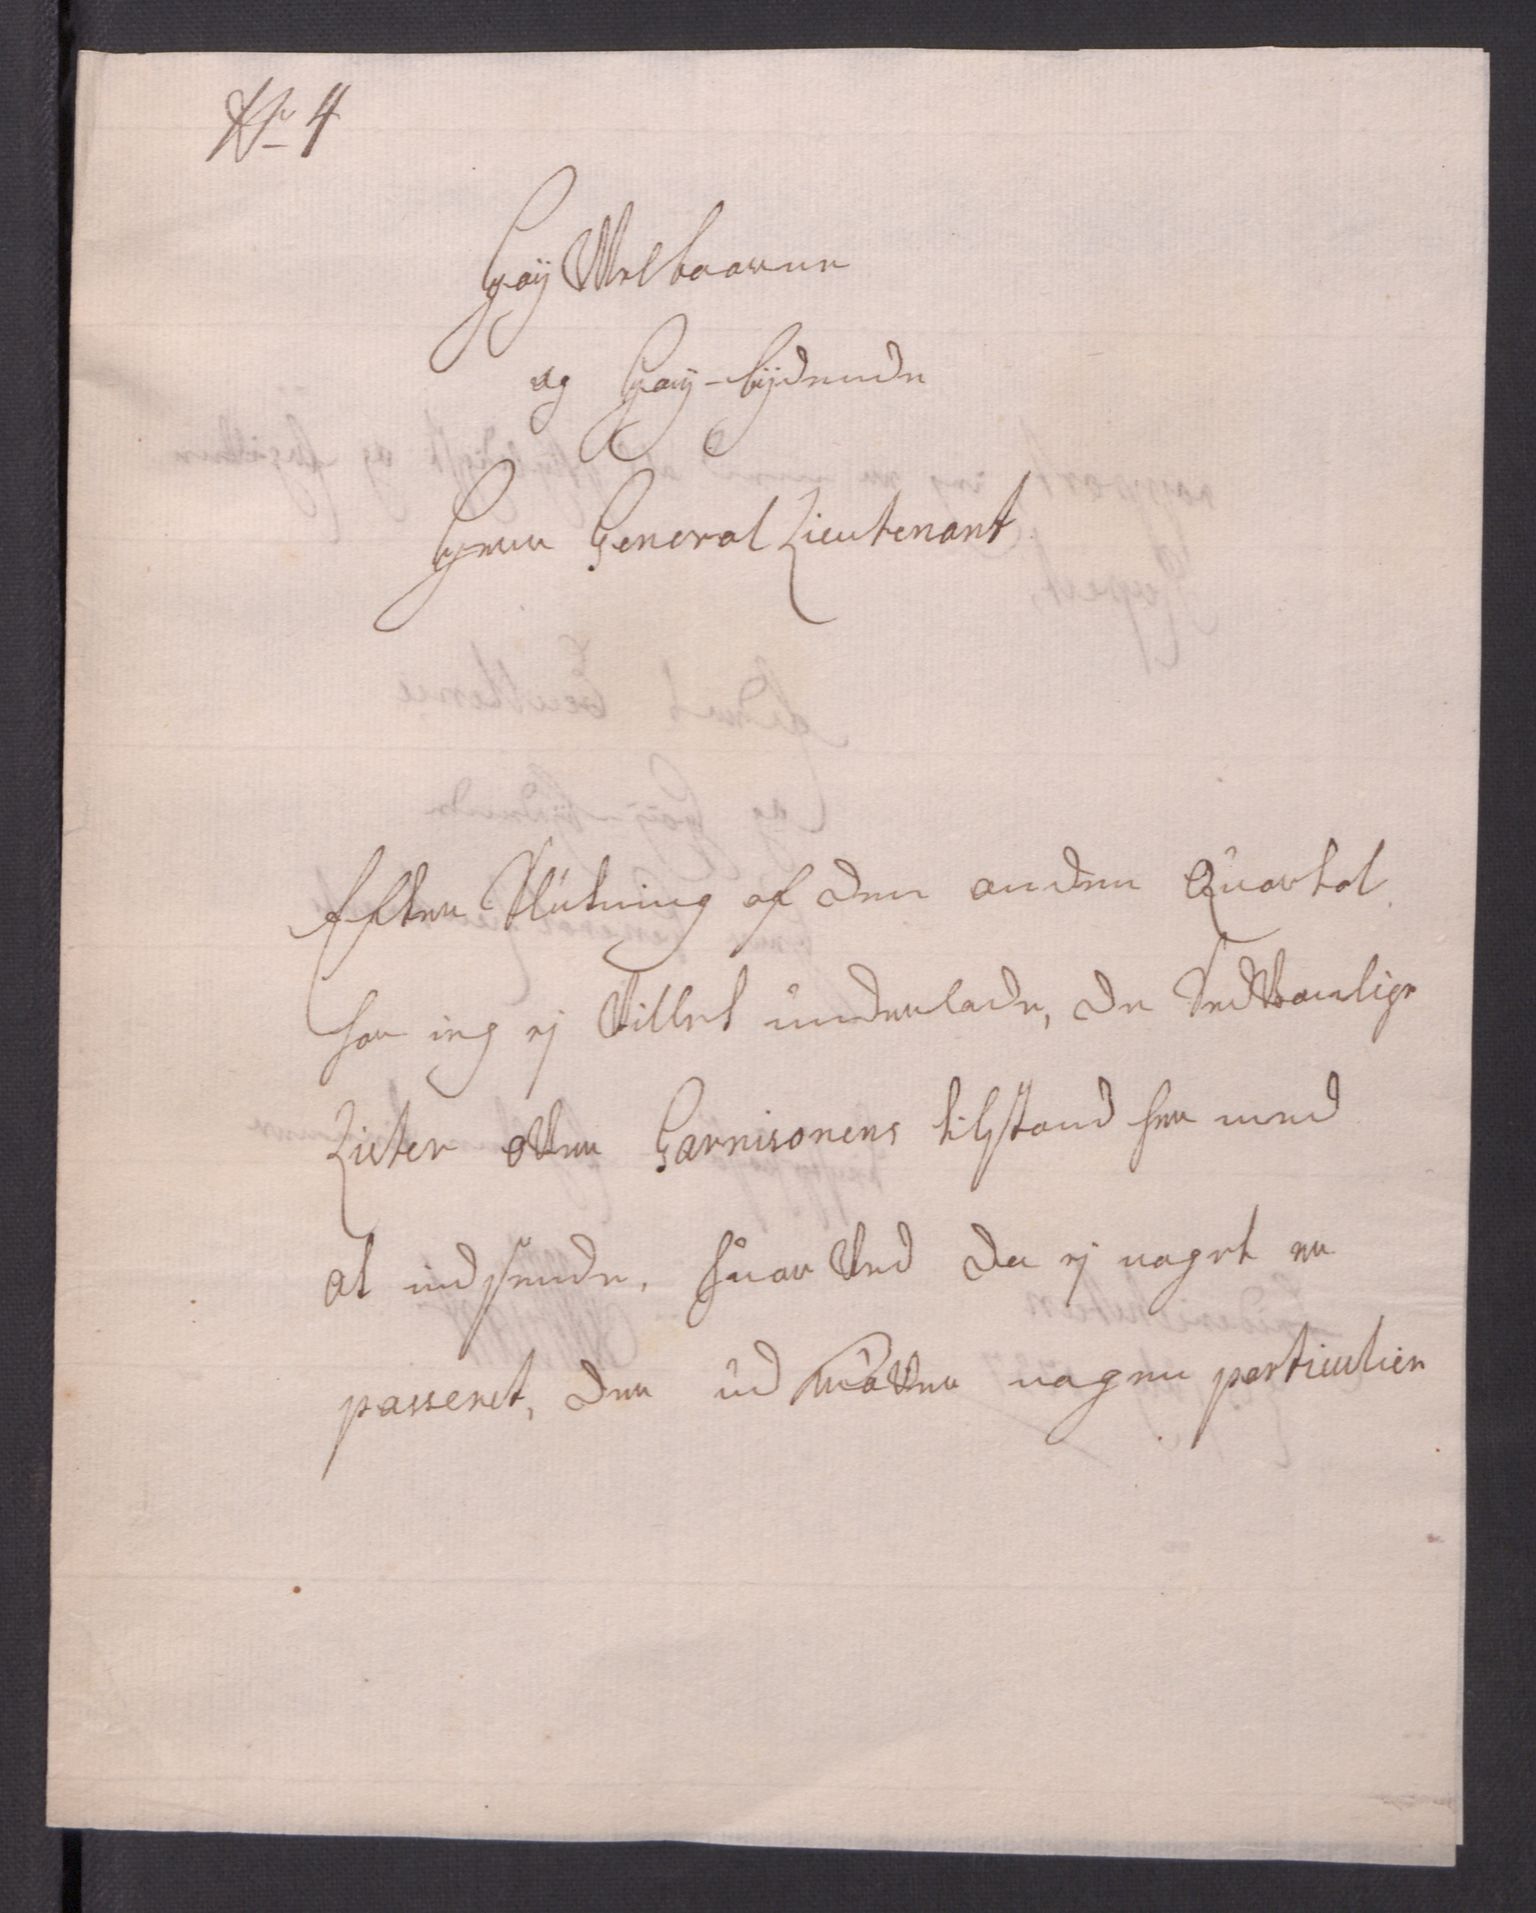 No 4
Høÿ Welbaarne
og Høÿ-bÿdende
Herr General Lieutenant
Efter Slutning af den anden Quartal
har ieg ej Villet underlade, de Sedvanlige
Lister over Garnisonens tilstand her med
at indsende, hvor Ved da ej noget er
passeret, der ud kræver nogen particulier